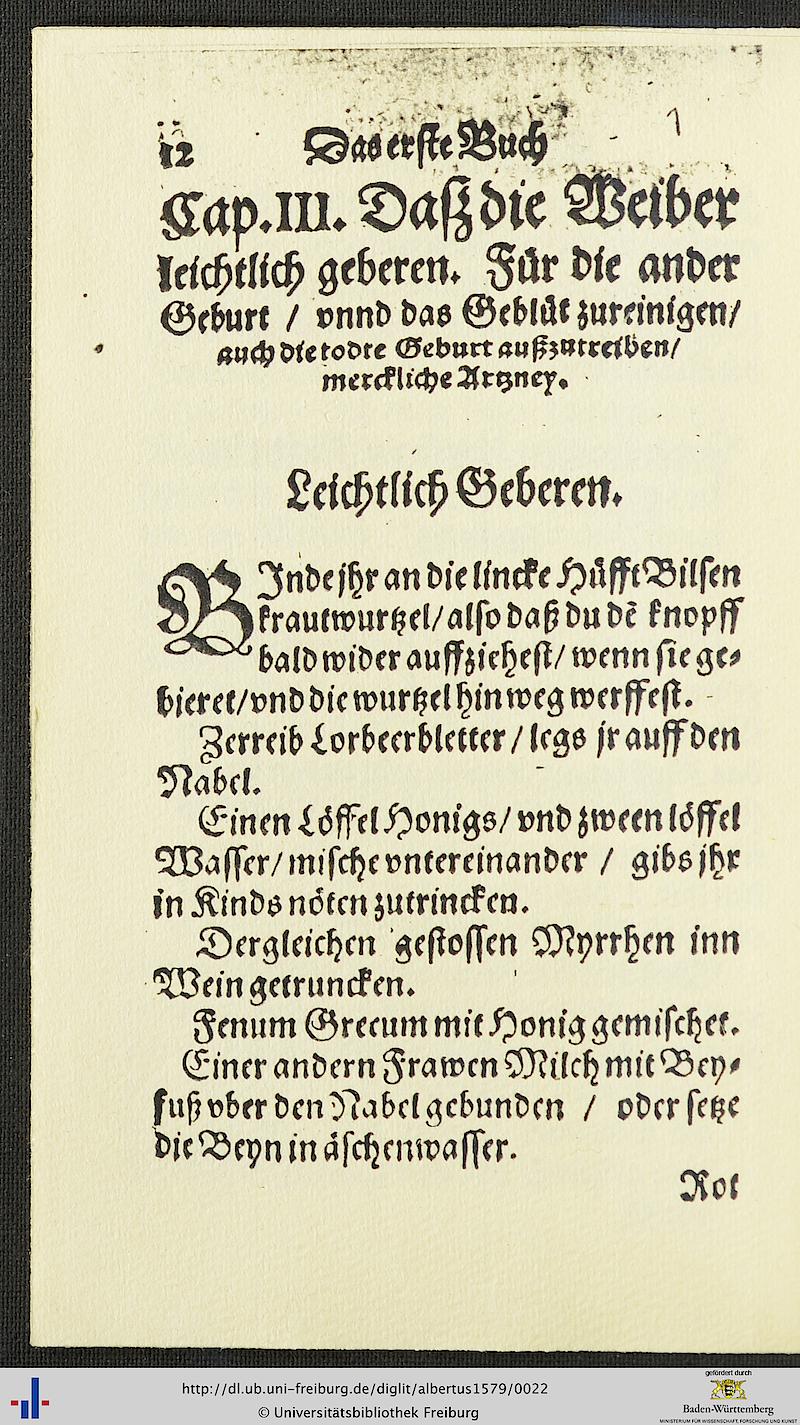 12 Das erste Buch
Cap. III. Daß die Weiber
leichtlich geberen. Für die ander
Geburt / vnnd das Geblüt zureinigen/
auch die todte Geburt außzutreiben/
merckliche Artzney.
Leichtlich Geberen.
BInde jhr an die lincke Hüfft Bilsen
krautwurtzel/ also daß du dẽ knopff
bald wider auffziehest/ wenn sie ge-
bieret/ vnd die wurtzel hinweg werffest.
Zerreib Lorbeerbletter / legs jr auff den
Nabel.
Einen Löffel Honigs/ vnd zween löffel
Wasser/ mische vntereinander / gibs jhr
in Kinds nöten zutrincken.
Dergleichen gestossen Myrrhen inn
Wein getruncken.
Fenum Grecum mit Honig gemischet.
Einer andern Frawen Milch mit Bey-
fuß vber den Nabel gebunden / oder setze
die Beyn in äschenwasser.
Rot
gefördert durch
http://dl.ub.uni-freiburg.de/diglit/albertus1579/0022
© Universitätsbibliothek Freiburg
Baden-Württemberg
MINISTERIUM FÜR WISSENSCHAFT, FORSCHUNG UND KUNST